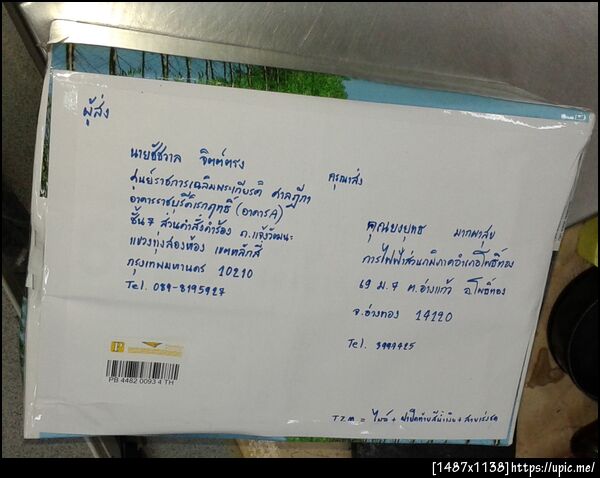 ผู้ส่ง
นายชัชวาล จิตต์ตรง
ศูนย์ราชการเฉลิมพระเกียรติ ศาลฎีกา
อาคารราชบุรีดิเรกฤทธิ์ (อาคารA)
ชั้น 7 ส่วนคำสั่งคำร้อง ถ.แจ้งวัฒนะ
แขวงทุ่งสองห้อง เขตหลักสี่
กรุงเทพมหานคร 10210
Tel. 089-8195927
กรุณาส่ง
คุณยงยุทธ มากผาสุข
การไฟฟ้าส่วนภูมิภาคอำเภอโพธิ์ทอง
69 ม.7 ต.อ่างแก้ว อ.โพธิ์ทอง
จ.อ่างทอง 14120
Tel.
PB 4482 0093 4 TH
[1487x1138]https://upic.me/